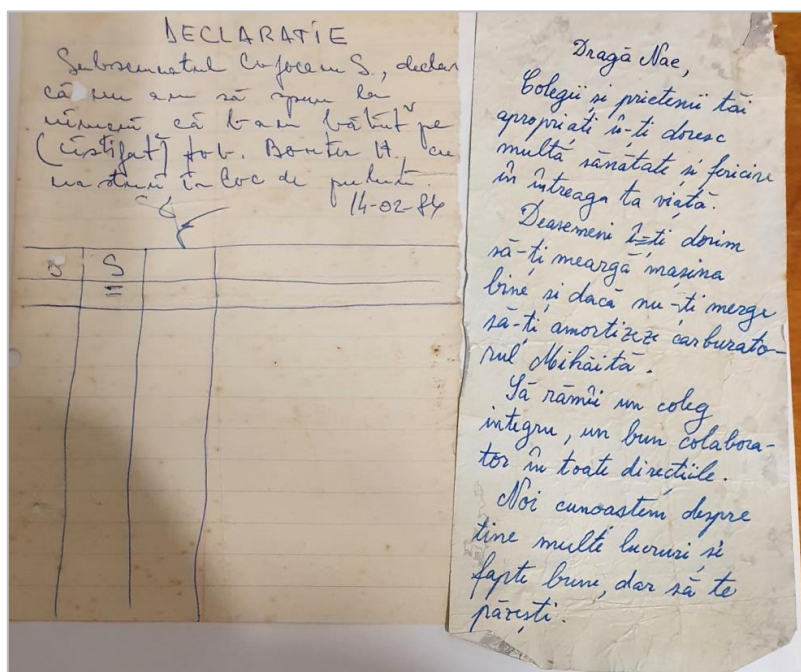 DECLARATIE
Subsemnatul Cojocaru S., declar
că nu am să spun la
nimeni că l-am bătut pe
(cîstigat) tov. Bontea H. cu
una sturi în loc de puluri.
14-02-84
S S
II
Dragă Nae,
Colegii si prietenii tăi
apropriati îs-ti doresc
multă sănătate si fericire
în întreaga ta viată.
Deasemeni îs-ti dorim
să-ti meargă masina
bine si dacă nu-ti merge
să-ti amortizeze carburato-
rul Mihăită.
Să rămîi un coleg
integru, un bun colabora-
tor în toate directiile.
Noi cunoastem despre
tine multe lucruri si
fapte bune, dar să te
păresti.